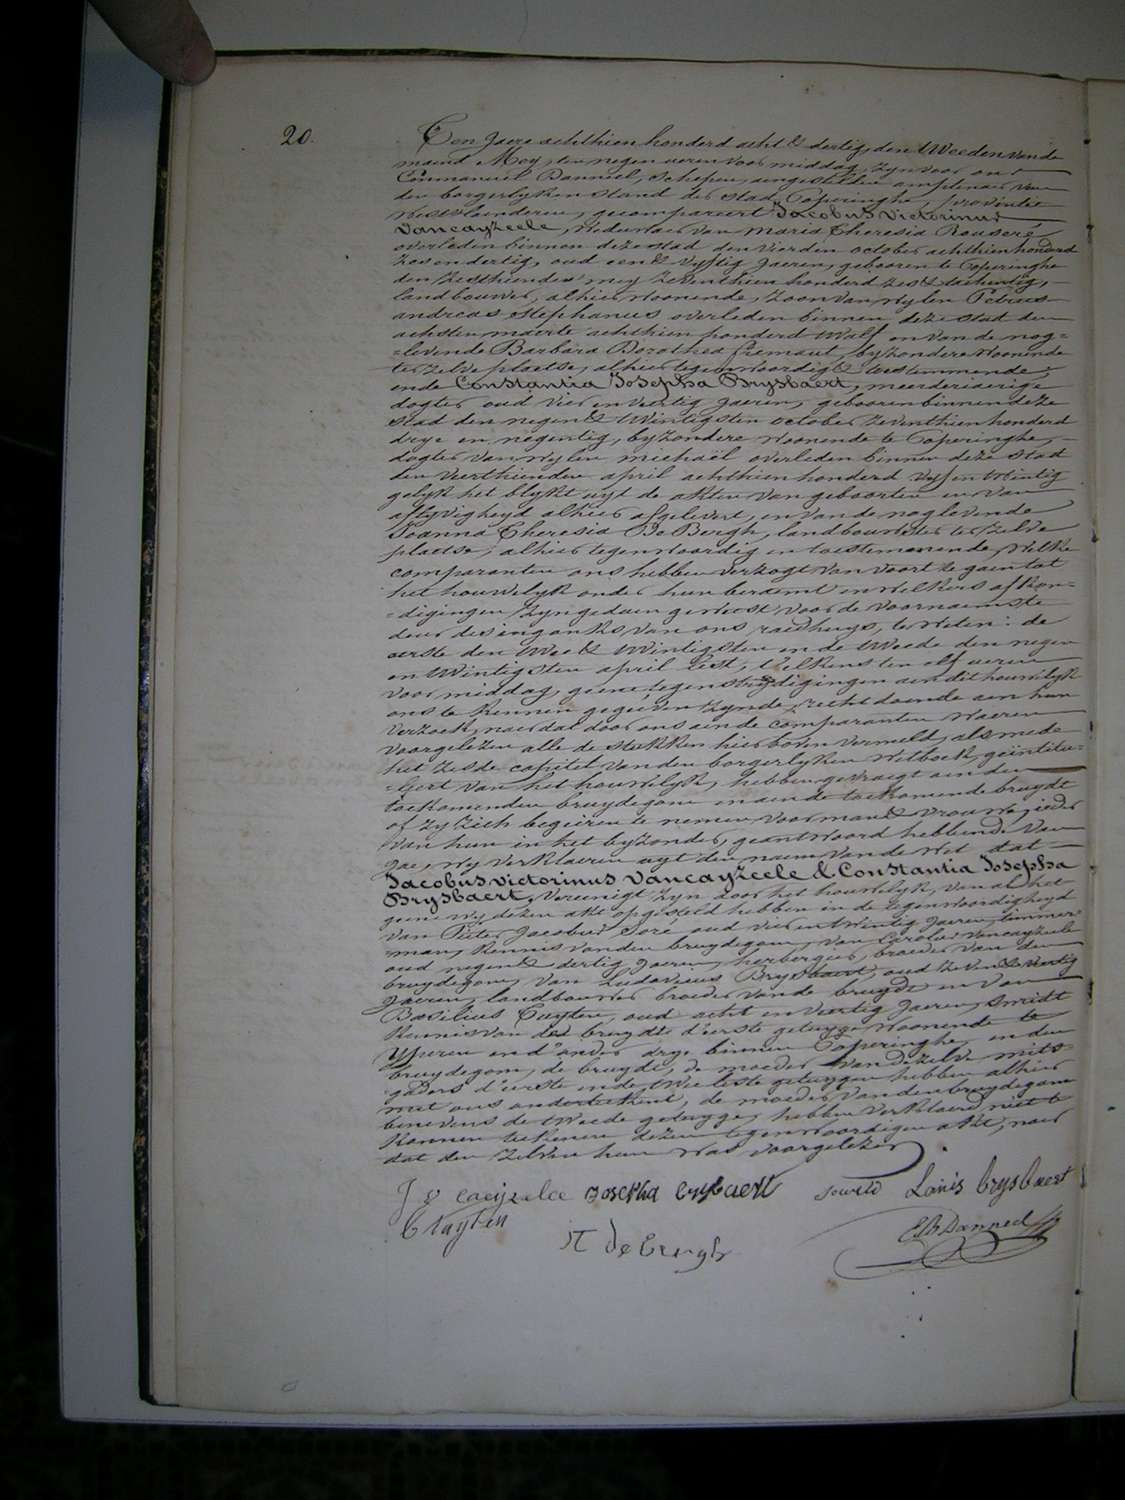 20.
Ten Jaere achthien honderd acht & dertig, den tWeeden van de
maend Mey, ten negen ueren voor middag, zyn voor ons
Emmanuel Danneel, schepen, aengestelden amptenaer van
den borgerlyken stand der Stad Poperinghe, provintie
Westvlaenderen, gecompareert Jacobus Victorinus
Vancayzeele, Weduwaer van Maria Theresia Rouseré
overleden binnen deze stad den vierden october achthien honderd
zes en dertig, oud een & vyftig Jaeren, gebooren te Poperinghe
den zesthienden mey zeventhien honderd zes & tachentig,
landbouwer, alhier Woonende, zoon van Wylen Petrus
andreas Stephanus overleden binnen deze stad den
achsten maerte achthien honderd twalf en van de nog-
-levende Barbara Dorothea Cremaut, byzondere Woonende
ter zelve plaetse, alhier tegenwoordig & toestemmende,
ende Constantia Josepha Brysbaert, meerderjarige
dogter oud vier en veertig Jaeren, gebooren binnen deze
stad den negen & tWintigsten october zeventhien honderd
drye en negentig, byzondere Woonende te Poperinghe,
dogter van Wylen michaël overleden binnen deze stad
den veerthienden april achthien honderd vyf en tWintig
gelyk het blykt uyt de akten van geboorten en van
aflyvigheyd alhier afgelevert, en van de noglevende
Joanna Theresia De Bergh, landbouwster ter zelve
plaetse, alhier tegenwoordig en toestemmende, Welke
comparanten ons hebben verzogt van voort te gaen tot
het houwelyk onder hun beraemt en Welkers afkon-
-digingen zyn gedaen geweest voor de voornaemste
deur des ingangs van ons raedhuys, te Weten: de
eerste den twee & tWintigsten en de tWeede den negen
en tWintigsten april lest, telkens ten elf ueren
voor middag, geene tegenstrydigingen aen dit houwelyk
ons te kennen gegeven zynde, recht doende aen hun
verzoek, naer dat door ons aen de comparanten Waeren
voorgelezen alle de stukken hier boven vermeld, als mede
het zesde capitel van den borgerlyken Wetboek, geïntitu-
-leert van het houwelyk, hebben gevraegt aen den
toekomenden bruydegom en aen de toekomende bruydt
of zy zich begeiren te nemen voor man & vrouw ieder
van hun in het byzonder, geantwoord hebbende van
Jae, Wy verklaeren uyt den naem van de Wet dat
Jacobus Victorinus Vancayzeele & Constantia Josepha
Brysbaert, vereenigt zyn door het houwelyk, van al het
geen wy dezen akt opgesteld hebben in de tegenwoordigheyd
van Pieter Jacobus Soré oud vier en tWintig Jaeren, timmer-
-man, Kennis van den bruydegom, van Carolus Vancayzeele
oud negen & dertig Jaeren, herbergier, broeder van den
bruydegom, van Ludovicus Brysbaert, oud zeven & veertig
Jaeren, landbouwer broeder van de bruydt en van
Basilius Tuyten, oud acht en veertig Jaeren, smidt
Kennis van de bruydt d'eerste getuyge Woonende te
Yperen en d'ander drye binnen Poperinghe, en den
bruydegom, de bruydt, de moeder van de zelve mits-
gaders d'eerste en de twee leste getuygen hebben alhier
met ons onderteekent, de moeder van den bruydegom
benevens de tWeede getuyge, hebben verklaerd niet te
konnen teekenen dezen tegenwoordigen akt, naer
dat den zelven hun Was voorgelezen
J V caeyzele Josepha brysbaert Louis brysbaert
B tuyten
JT de bergh
EB Danneel